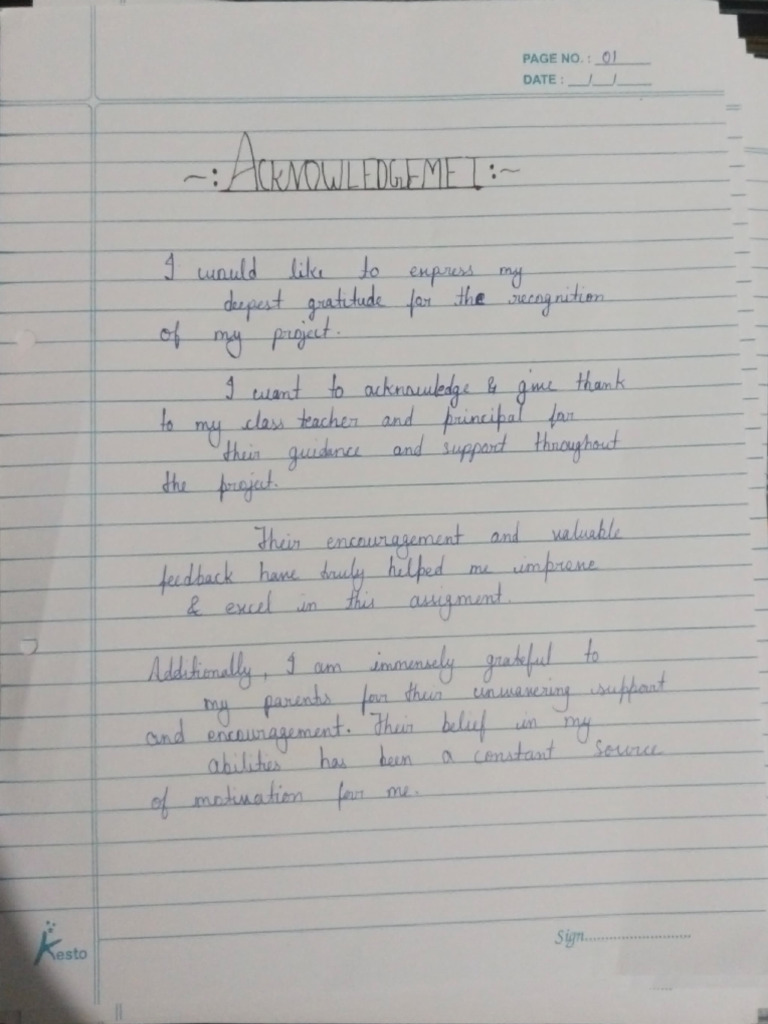 PAGE NO. : 01
DATE : __/__/__
~: ACKNOWLEDGEMET :~
I would like to express my
deepest gratitude for the recognition
of my project.
I want to acknowledge & give thank
to my class teacher and principal for
their guidance and support throughout
the project.
Their encouragement and valuable
feedback have truly helped me improve
& excel in this assigment.
Additionally, I am immensely grateful to
my parents for their unwavering support
and encouragement. Their belief in my
abilities has been a constant source
of motivation for me.
Kesto
Sign..........................